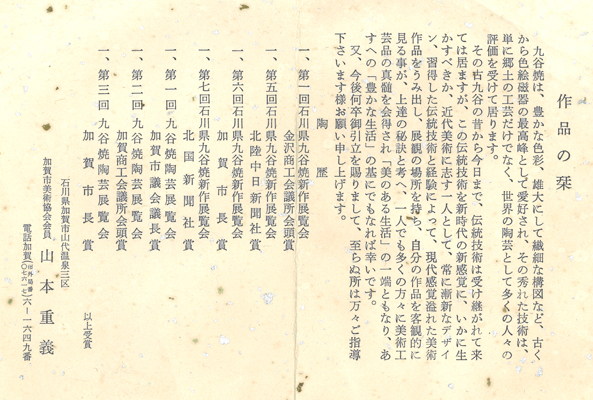 作品の栞
九谷焼は、豊かな色彩、雄大にして繊細な構図など、古く
から色絵磁器の最高峰として愛好され、その秀れた技術は、
単に郷土の工芸だけでなく、世界の陶芸として多くの人々の
評価を受けて居ります。
その古九谷の昔から今日まで、伝統技術は受け継がれて来
ては居ますが、この伝統技術を新時代の新感覚に、いかに生
かすべきか、近代美術に志す一人として、常に漸新なデザイ
ン、習得した伝統技術と経験によって、現代感覚溢れた美術
作品をうみ出し、展観の場所を持ち、自分の作品を客観的に
見る事が、上達の秘訣と考へ、一人でも多くの方々に美術工
芸品の真髄を会得され「美のある生活」の一端ともなり、あ
すへの「豊かな生活」の基にでもなれば幸いです。
又、今後何卒御引立を賜りまして、至らぬ所は万々ご指導
下さいます様お願い申し上げます。
陶歴
一、第一回石川県九谷焼新作展覧会
金沢商工会議所会頭賞
一、第五回石川県九谷焼新作展覧会
北陸中日新聞社賞
一、第六回石川県九谷焼新作展覧会
加賀市長賞
一、第七回石川県九谷焼新作展覧会
北国新聞社賞
一、第一回九谷焼陶芸展覧会
加賀市議会議長賞
一、第二回九谷焼陶芸展覧会
加賀商工会議所会頭賞
一、第三回九谷焼陶芸展覧会
加賀市長賞
以上受賞
石川県加賀市山代温泉三区
加賀市美術協会会員 山本重義
電話加賀(市外局番〇七六一七)六―一六四九番